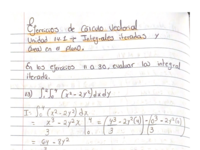 Ejercicios de Cálculo Vectorial
Unidad 14.1 Integrales iteradas y
área en el plano.
En los ejercicios 11 a 30, evaluar la integral
iterada.
I = ∫₀² ∫₀⁴ (x² - 2y²) dx dy
= x³ - 2y²x |⁴₀ = (4³ - 2y²(4)) - (0³ - 2y²(0))
3 3 3
= 64 - 8y²
3